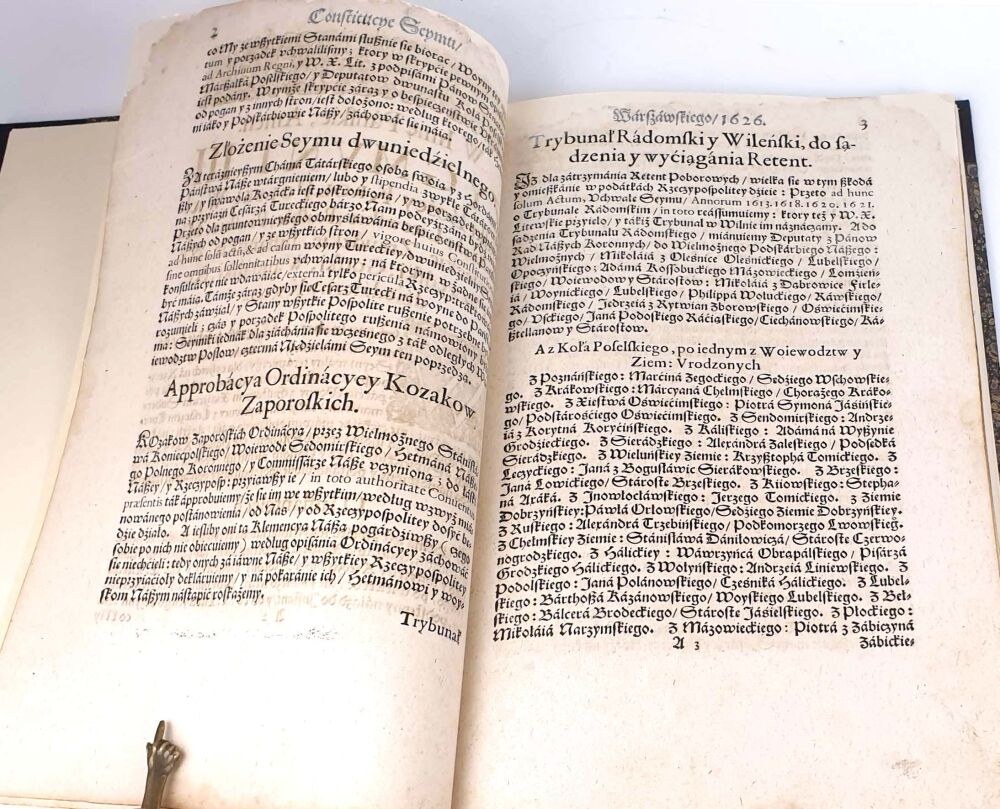 2
Constitucye Seymu/
co My ze wßytkiemi Stanámi słußnie sie biorąc/ Woyny
tum y porządek vchwaliliſmy; ktory w skrypcie pewnym
ad Archiuum Regni, y W. X. Lit. z podpisámi Pánow Se
Márßałká Poselskiego/ y Deputatow dwunastu Koła Posel
iest podány. W tymże skrypcie záraz y o bespieczeństwie
od pogan y z innych stron/ iest dołożono: według ktorego/ ták
ni iáko y Podskárbiowie Náßy/ záchowáć sie máią.
Złożenie Seymu dwuniedzielnego.
ZA teráznieyßym Chámá Tátárskiego osobą swoią y z Hordámi
Páństwá Náße wtárgnieniem/ lubo y stipendia zwykłe Tátárom
ßły/ y swawola Kozácka iest poskromiona/ y w porządek
ná: przyiaźń Cesárzá Tureckiego bárzo Nam podeyrzána być
Przeto dla gruntownieyßego obmyślawánia bespieczeństwá Páństw
Náßych od pogan/ y ze wßytkich stron/ vigore huius Constitutionis
ad hunc solũ actũ, & ad casum woyny Tureckiey/ dwuniedzielny Seym
sine omnibus sollennitatibus vchwalamy: ná ktorym w żadne
konsultácye nie wdawáiąc/ externa tylko pericula Rzeczyp: tráktowáne
być máią. Támże záraz gdyby sie Cesarz Turecki ná woynę do Páństw
Náßych záwziął/ y Stany wßytkie Pospolite rußenie potrzebne być
rozumieli: czás y porządek Pospolitego rußenia námowiony być
ma: Seymiki iednák dla ziáchánia sie wczesnego z ták odległych Wo-
iewodztw Posłow/ czterma Niedzielámi Seym ten poprzedzą.
Approbácya Ordinácyey Kozakow
Zaporoſkich.
KOzakow Zaporoskich Ordinácya/ przez Wielmożnego Stánisłá-
wá Koniecpolskiego/ Woiewodę Sędomirskiego/ Hetmáná Náßego
go Polnego Koronnego/ y Commissarze Náße vczyniona z do łáski
Náßey/ y Rzeczyposp: przyiawßy ie/ in toto authoritate Conuentus
præsentis ták ápprobuiemy/ że sie im we wßytkim/ według wzwyż mia-
nowánego postánowienia/ od Nas/ y od Rzeczypospolitey dosyć bę-
dzie działo. A iesliby oni tą Klemencyą Náßą pogárdziwßy (czego
sobie po nich nie obiecuiemy) według opisánia Ordinácyey záchowáć
sie niechcieli: tedy onych zá iáwne Náße/ y wßytkiey Rzeczypospolitey
nieprzyiacioły dekláruiemy/ y ná pokaránie ich/ Hetmánowi y woy-
skom Náßym nástąpić roskażemy.
Trybunał
Wárßáwskiego/ 1626.
3
Trybunał Rádomski y Wileński, do są-
dzenia y wyćiągánia Retent.
IZ dla zátrzymánia Retent Poborowych/ wielka sie w tym ßkodá
y omießkánie w podátkách Rzeczypospolitey dzieie: Przeto ad hunc
solum Actum, Vchwałę Seymu/ Annorum 1613. 1618. 1620. 1621.
o Trybunale Rádomskim/ in toto reassumuiemy: ktory też y W. X.
Litewskie przyięło/ y tákiż Trybunał w Wilnie im náznáczamy. A do
sądzenia Trybunału Rádomskiego/ miánuiemy Deputaty z Pánow
Rad Náßych Koronnych/ do Wielmożnego Podskárbiego Náßego:
Wielmożnych/ Mikołáiá z Olesnice Olesnickiego/ Lubelskiego/
Opoczyńskiego; Adámá Kossobuckiego Mázowieckiego/ Lomżień-
skiego/ Woiewodow y Stárostow: Mikołáiá z Dąbrowice Firle-
iá/ Woynickiego/ Lubelskiego/ Philippá Wołuckiego/ Ráwskiego/
Rádomskiego/ Jędrzeiá z Rytwian Zborowskiego/ Oświęcimskie-
go/ Vsckiego/ Janá Podoskiego Ráciąskiego/ Ciechánowskiego/ Ká-
ßtellanow y Stárostow.
A z Kołá Poselskiego, po iednym z Woiewodztw y
Ziem: Vrodzonych
Z Poznáńskiego: Márciná Zegockiego/ Sędziego Wschowskie-
go. Z Krákowskiego: Márcyaná Chełmskiego/ Chorążego Kráko-
wskiego. Z Xięstwá Oświęcimskiego: Piotrá Symoná Jásińskie-
go/ Podstárościego Oświęcimskiego. Z Sendomirskiego: Andrze-
iá z Korytná Koryćińskiego. Z Káliskiego: Adámá ná Wyßynie
Grodzieckiego. Z Sierádzkiego: Alexándrá Zaleskiego/ Podsędká
Sierádzkiego. Z Wieluńskiey Ziemie: Krzyßtophá Tomickiego. Z
Łęczyckiego: Janá z Bogusłáwic Sierákowskiego. Z Brzeskiego:
Janá Łowickiego/ Stárostę Brzeskiego. Z Kiiowskiego: Stephá-
ná Aráká. Z Inowłocłáwskiego: Jerzego Tomickiego. Z Ziemie
Dobrzyńskiey: Páwłá Orłowskiego/ Sędziego Ziemie Dobrzyńskiey.
Z Ruskiego: Alexándrá Trzebińskiego/ Podkomorzego Lwowskieg.
Z Chełmskiey Ziemie: Stánisłáwá Dániłowiczá/ Stárostę Czerwo-
nogrodzkiego. Z Hálickiey: Wáwrzyńcá Obrapálskiego/ Pisárzá
Grodzkiego Hálickiego. Z Wołyńskiego: Andrzeiá Liniewskiego. Z
Podolskiego: Janá Polánowskiego/ Cześniká Hálickiego. Z Lubel-
skiego: Bárthoßá Kázánowskiego/ Woyskiego Lubelskiego. Z Beł-
skiego: Bálcerá Brodeckiego/ Stárostę Jásielskiego. Z Płockiego:
Mikołáiá Narzymskiego. Z Mázowieckiego: Piotrá z Zábiczyná
A 3
Zábickie-